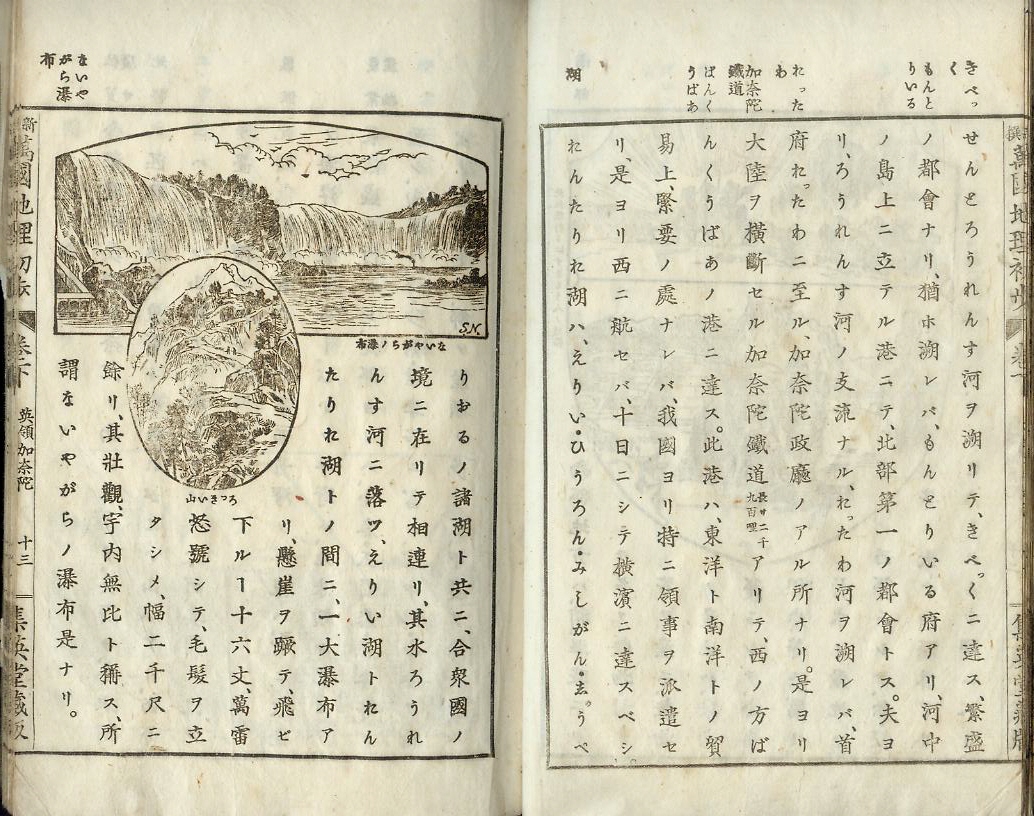 きべっく
もんとりいる
おったわ
加奈陀鐵道
ばんくうばあ
湖
せんとろうれんす河ヲ溯リテ、きべっくニ達ス、繁盛
ノ都會ナリ、猶ホ溯レバ、もんとりいる府アリ、河中
ノ島上ニ立テル港ニテ、北部第一ノ都會トス。夫ヨ
リ、ろうれんす河ノ支流ナル、おったわ河ヲ溯レバ、首
府おったわニ至ル、加奈陀政廳ノアル所ナリ。是ヨリ
大陸ヲ横斷セル加奈陀鐵道長サ二千九百哩アリテ、西ノ方ば
んくうばあノ港ニ達ス。此港ハ、東洋ト南洋トノ貿
易上、緊要ノ處ナレバ、我國ヨリ特ニ領事ヲ派遣セ
リ、是ヨリ西ニ航セバ、十日ニシテ横濱ニ達スベシ。
おんたりお湖ハ、えりい・ひうろん・みしがん・志うぺ
ないやがら瀑布
S.N.
ないやがらノ瀑布
ろっきい山
りおるノ諸湖ト共ニ、合衆國ノ
境ニ在リテ相連リ、其水ろうれ
んす河ニ落ツ、えりい湖トおん
たりお湖トノ間ニ、一大瀑布ア
リ、懸崖ヲ蹶テ、飛ビ
下ルヿ十六丈、萬雷
怒號シテ、毛髮ヲ立
タシメ、幅二千尺ニ
餘リ、其壯觀、宇内無比ト稱ス、所
謂ないやがらノ瀑布是ナリ。
萬國地理初歩 卷下 英領加奈陀 十三 集英堂藏版